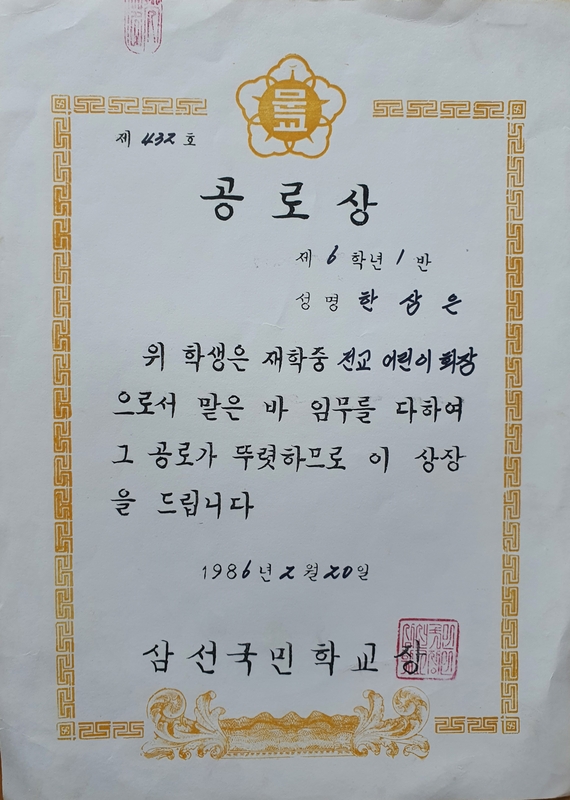 문교
제 432 호
공로상
제 6 학년 1 반
성명 한삼은
위 학생은 재학중 전교 어린이 회장
으로서 맡은 바 임무를 다하여
그 공로가 뚜렷하므로 이 상장
을 드립니다
1986년 2월 20일
삼선국민학교장